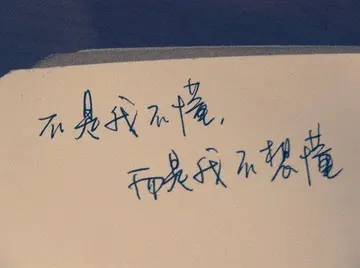 不是我不懂,
而是我不想懂